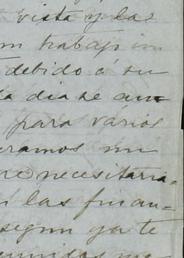 vista y las
trabajo im
debido á su
dia se au
para varios
eramos un
necesitaria
las finan
segun ya te